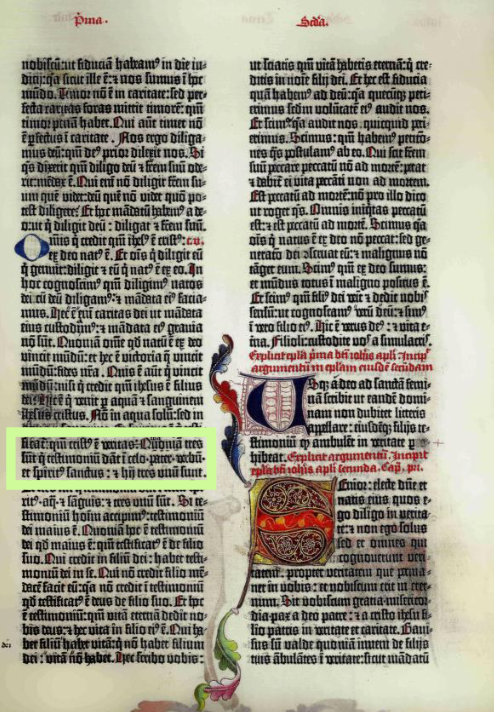 Prima. Scda.
nobiscū: ut fiduciā habeam⁹ in die iu-
dicij: q̄a sicut ille ē: ⁊ nos sumus ī hoc
mūdo. Timor nō ē in caritate: sed per-
fecta caritas foras mittit timorē: qm̄
timor penā habet. Qui aūt timet nō
ē pfectus ī caritate. Nos ergo diliga-
mus deū: qm̄ de⁹ prior dilexit nos. Si
q̄s dixerit qm̄ diligo deū ⁊ frēm suū ode-
rit: mēdax ē. Qui eni nō diligit frēm su-
um quē videt: deū quē nō videt quō po-
test diligere. Et hoc mādatū habem⁹ a de-
o: ut q̄ diligit deū: diligat ⁊ frēm suū.
Omnis q̄ credit qm̄ ihesus ē cristus: c. v.
ex deo nat⁹ ē. Et oīs q̄ diligit eū
q̄ genuit: diligit ⁊ eū q̄ nat⁹ ē ex eo. In
hoc cognoscim⁹ qm̄ diligim⁹ natos
dei: cū deū diligam⁹: ⁊ mādata ei⁹ facia-
mus. Hec ē eni caritas dei: ut mādata
eius custodiam⁹: ⁊ mādata ei⁹ gravia
nō sūt. Quoniā omne qd̄ natū ē ex deo
vincit mūdū: et hec ē victoria q̄ vincit
mūdū: fides n̄ra. Quis ē aūt q̄ vincit
mūdū: nisi q̄ credit qm̄ ihesus ē filius
dei. Hic ē q̄ venit p aquā ⁊ sanguinem
ihesus cristus. Nō in aqua solū: sed in
ficat: qm̄ crist⁹ ē veritas. Quoniā tres
sūt q̄ testimoniū dāt ī celo: pater verbū
et spirit⁹ sanctus: ⁊ hij tres unū sunt.
rit⁹ aq̄ ⁊ sāguis: ⁊ tres unū sūt. Si te-
stimoniū hoīm accipim⁹: testimoniū
dei maius ē. Quoniā hoc ē testimoniū
dei qd̄ maius ē: qm̄ testificat⁹ ē de filio
suo. Qui credit in filiū dei: habet testi-
moniū dei in se. Qui nō credit filio mē-
dacē facit eū: q̄a nō credit ī testimoniū
qd̄ testificat⁹ ē deus de filio suo. Et hoc
ē testimoniū: qm̄ vitā eternā dedit no-
bis deus: ⁊ hec vita in filio ei⁹ ē. Qui ha-
bet filiū habet vitā: q̄ nō habet filium
dei: vitā nō habet. Hec scribo vobis:
ut sciatis qm̄ vitā habetis eternā: q̄ cre-
ditis in noīe filij dei. Et hec est fiducia
quā habem⁹ ad deū: q̄a quecūq; peti-
erimus scdm volūtatē ei⁹ audit nos.
Et scim⁹ q̄a audit nos quicquid peti-
erimus. Scimus: qm̄ habem⁹ petitio-
nes q̄s postulam⁹ ab eo. Qui scit frēm
suū peccare peccatū nō ad mortē: petat
⁊ dabit ei vita peccāti nō ad mortem.
Est peccatū ad mortē: nō pro illo dico
ut roget q̄s. Omnis iniq̄tas peccatū
est: ⁊ est peccatū ad mortē. Scim⁹ q̄a
oīs q̄ natus ē ex deo nō peccat: sed ge-
neratio dei cōservat eū: ⁊ malignus nō
tāget eum. Scim⁹ qm̄ ex deo sumus:
et mūdus totus ī maligno positus ē.
Et scim⁹ qm̄ fili⁹ dei venit ⁊ dedit nobis
sensū: ut cognoscam⁹ verū deū: ⁊ sim⁹
ī vero filio ei⁹. Hic ē verus de⁹: ⁊ vita e-
t̄na. Filioli: custodite vos a simulacris.
Explicit epl̄a prima bti iohīs apl̄i. Incipit
argumentū in epl̄am eiusdē secūdam
Usq; adeo ad sanctā femi-
nā scribit: ut eandē domi-
nam non dubitet litteris
appellare: eiusq; filijs te-
stimoniū q̄ ambulēt in veritate p-
hibeat. Explicit argumentū. Incipit
epl̄a bti iohīs apl̄i secunda. Cap. pri.
Senior: electe dn̄e et
natis eius quos e-
go diligo in verita-
te: ⁊ non ego solus
sed et omnes qui
cognoverunt veri-
tatem: propter veritatem que perma-
net in vobis: et vobiscum erit in eter-
num. Sit vobiscum gratia misericor-
dia pax a deo patre: ⁊ a cristo ihesu fi-
lio patris in veritate et caritate. Gavi-
sus sū valde quoniā inveni de filijs
tuis ābulātes ī veritate: sicut mādatū